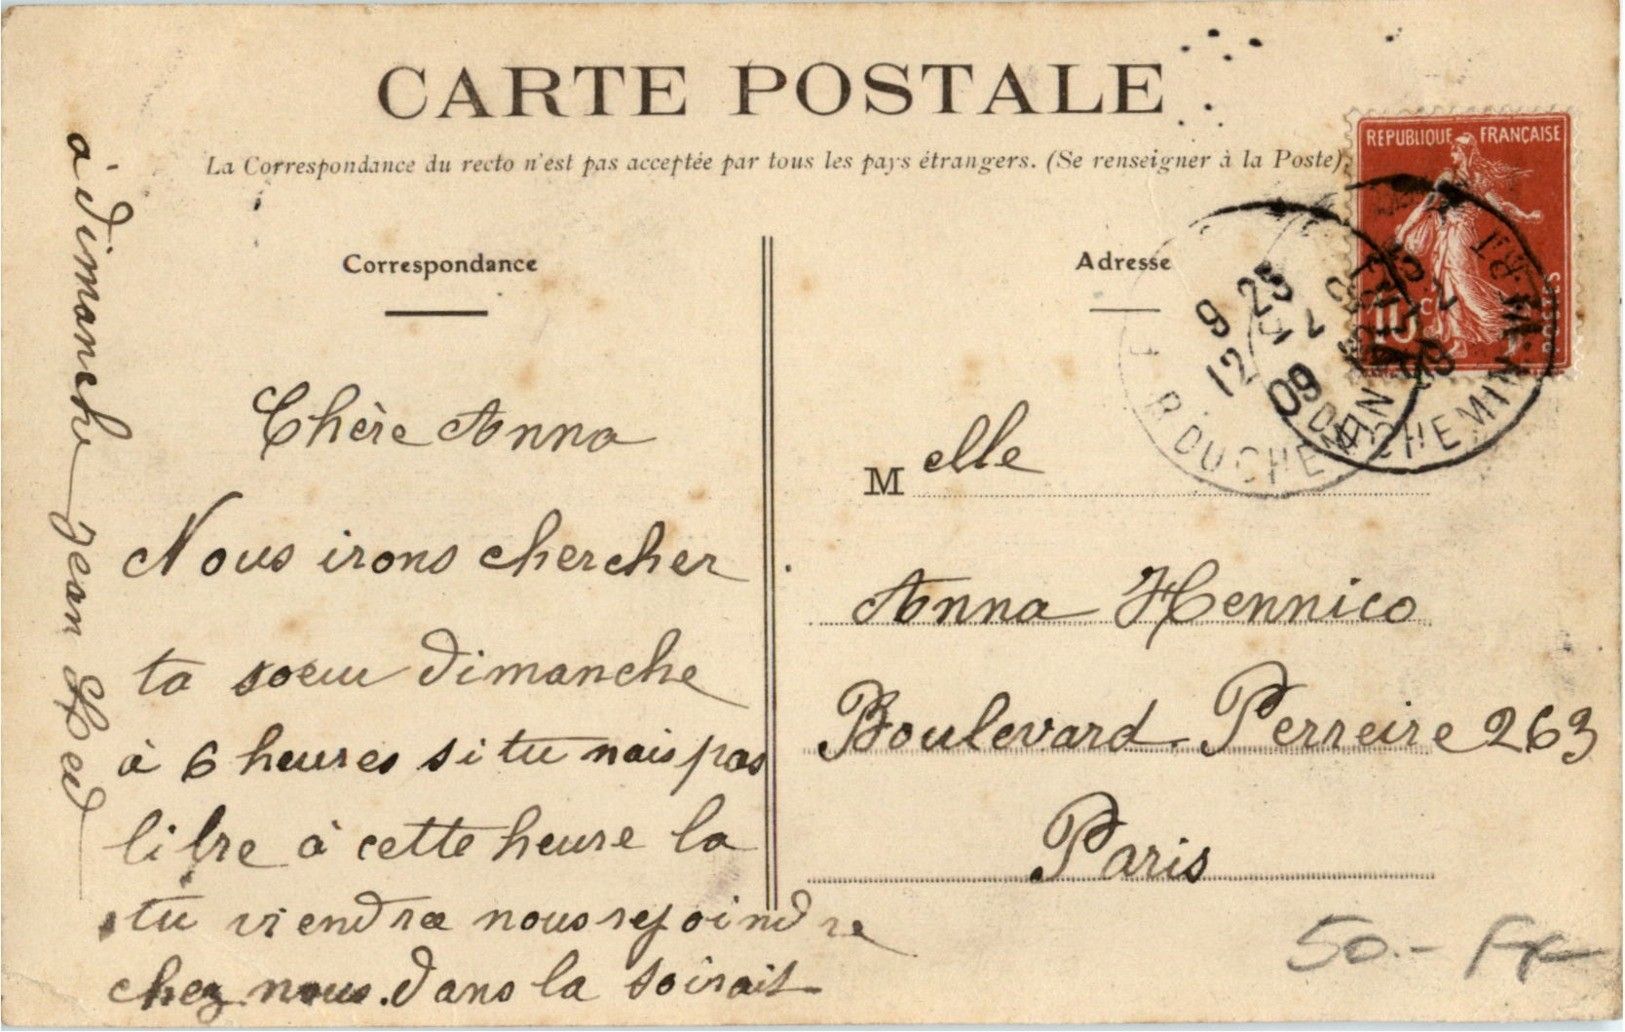 CARTE POSTALE
La Correspondance du recto n'est pas acceptée par tous les pays étrangers. (Se renseigner à la Poste).
REPUBLIQUE FRANÇAISE
10 c
Correspondance
Chère Anna
Nous irons chercher
ta soeur dimanche
à 6 heures si tu nais pas
libre à cette heure la
tu viendra nous rejoindre
chez nous. dans la soirait
à dimanche Jean
Adresse
Melle
Anna Hennico
Boulevard Perreire 263
Paris
9 25
12
09
R DU CHEMIN
CHEMIN
50.- Fr